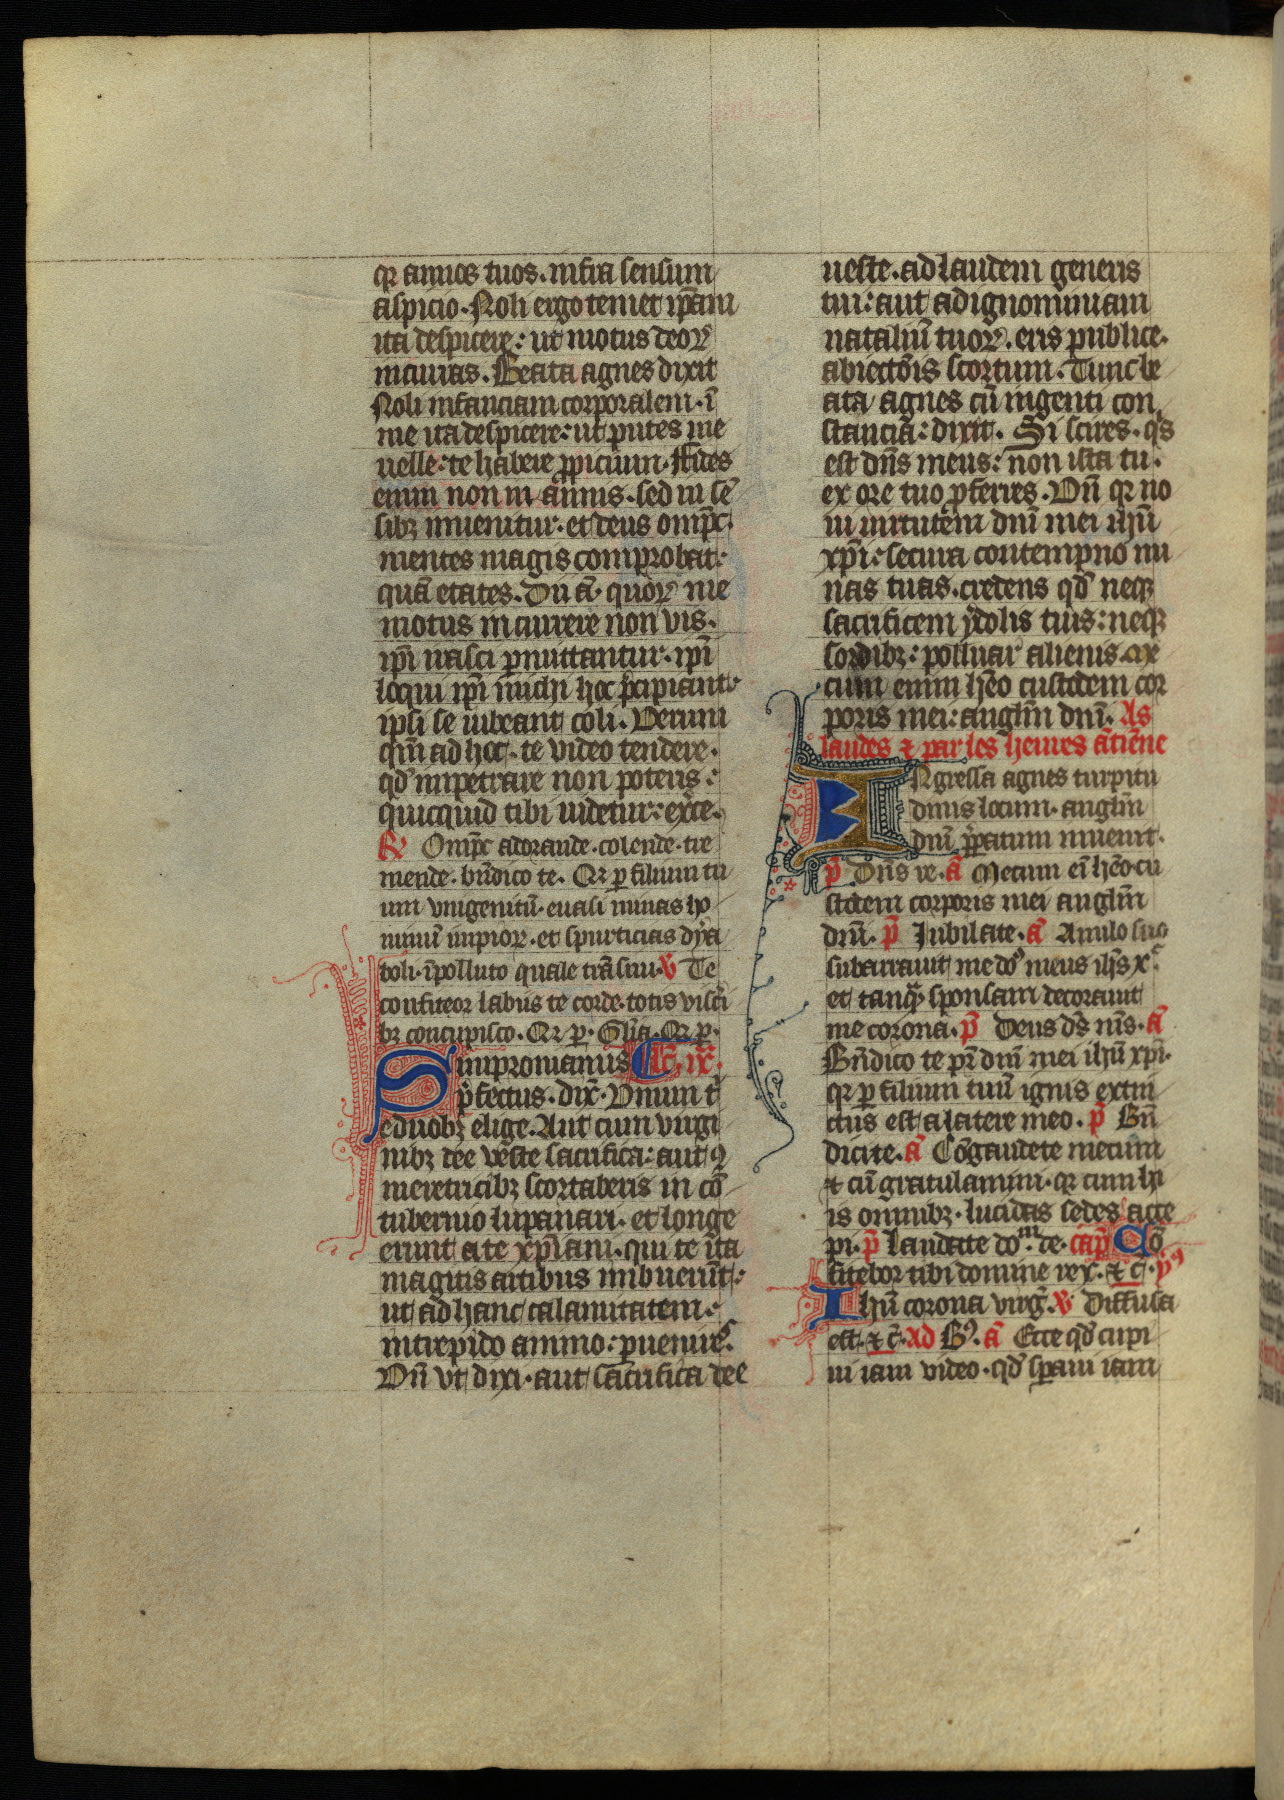 qr annos tuos. infra sensum
aspicio. Noli ergo temet ip̄am
ita despicere: ut motus deoꝝ
incurras. Beata agnes dixit
Noli infanciam corporalem. ī
me ita despicere: ut putes me
uelle: te habere ꝓpicium. Fides
enim non in annis. sed in sē
sibꝫ inuenitur. et deus omp̄c.
mentes magis comprobat:
quā etates. Dii ā. quoꝝ me
motus incurrere non vis.
ip̄i irasci ꝑmittantur. ip̄i
loqui ip̄i michi hoc p̄cipiant.
ipsi se iubeant coli. Verum
qm̄ ad hoc. te video tendere.
qd̓ impetrare non poteris:
quicquid tibi uidetur: ex̓ce.
℟ Omp̄c adorande. colende. tre
mende. bn̄dico te. Qr ꝑ filium tu
um vnigenitū. euasi minas ho
minū impioꝝ. et spurticias dẏa
boli. īpolluto quale trāsiui. ℣ Te
confiteor labiis te corde. totis visc̓i
bꝫ concupisco. Qr ꝑ. Gl̄ia. Qr ꝑ.
Simpronianus Lc̄. ix̄.
p̄fectus. dix̄. Vnum t̄
e duobꝫ elige. Aut cum virgi
nibꝫ dee veste sacrifica: aut ꝯ
meretricibꝫ scortaberis in cō
tubernio lupanari. et longe
erunt a te xp̄iani. qui te ita
magicis artibus imbuerūt:
ut ad hanc calamitatem.
intrepido animo: ꝑuenires.
Vn̄ vt dixi. aut sacrifica dee
ueste. ad laudem generis
tui: aut ad ignominiam
nataliū tuoꝝ. eris publice.
abiectōis scortum. Tunc be
ata agnes cū ingenti con
stanciā: dixit. Si scires. qͥs
est dn̄s meus: non ista tu.
ex ore tuo ꝓferres. Vn̄ qr no
ui uirtutem dn̄i mei ihū
xp̄i: secura contempno mi
nas tuas. credens qd̓ neqꝫ
sacrificem ẏdolis tuis: neqꝫ
sordibꝫ: polluar alienis. Me
cum enim hēo custodem cor
poris mei: angl̄m dn̄i. As
laudes ⁊ par les heures ātiēne
INgressa agnes turpitu
dinis locum. angl̄m
dn̄i p̄paratum inuenit.
p̄ Dn̄s re. ā Mecum ei̅ hēo cu
stodem corporis mei angl̄m
dn̄i. p̄ Iubilate. ā Anulo suo
subarrauit me dō meus ih̄s x̄c
et tanqͣ sponsam decorauit
me corona. p̄ Deus ds̄ n̄is. ā
Bn̄dico te pr̄ dn̄i mei ihū xp̄i.
qr ꝑ filium tuū ignis extin
ctus est a latere meo. p̄ Bn̄
dicite. ā Cōgaudete mecum
⁊ cū gratulamini. qr cum hi
is omnibꝫ. lucidas sedes acce
pi. p̄ Laudate do.ᵐ de. cap̄ Cō
fitebor tibi domine rex. ⁊ c̄. ẏꝰ
Ihū corona virg̓. ℣ Diffusa
est. ⁊ c̄. Ad Bꝰ. ā Ecce qd̓ cupi
ui iam video. qd̓ sꝑaui iam